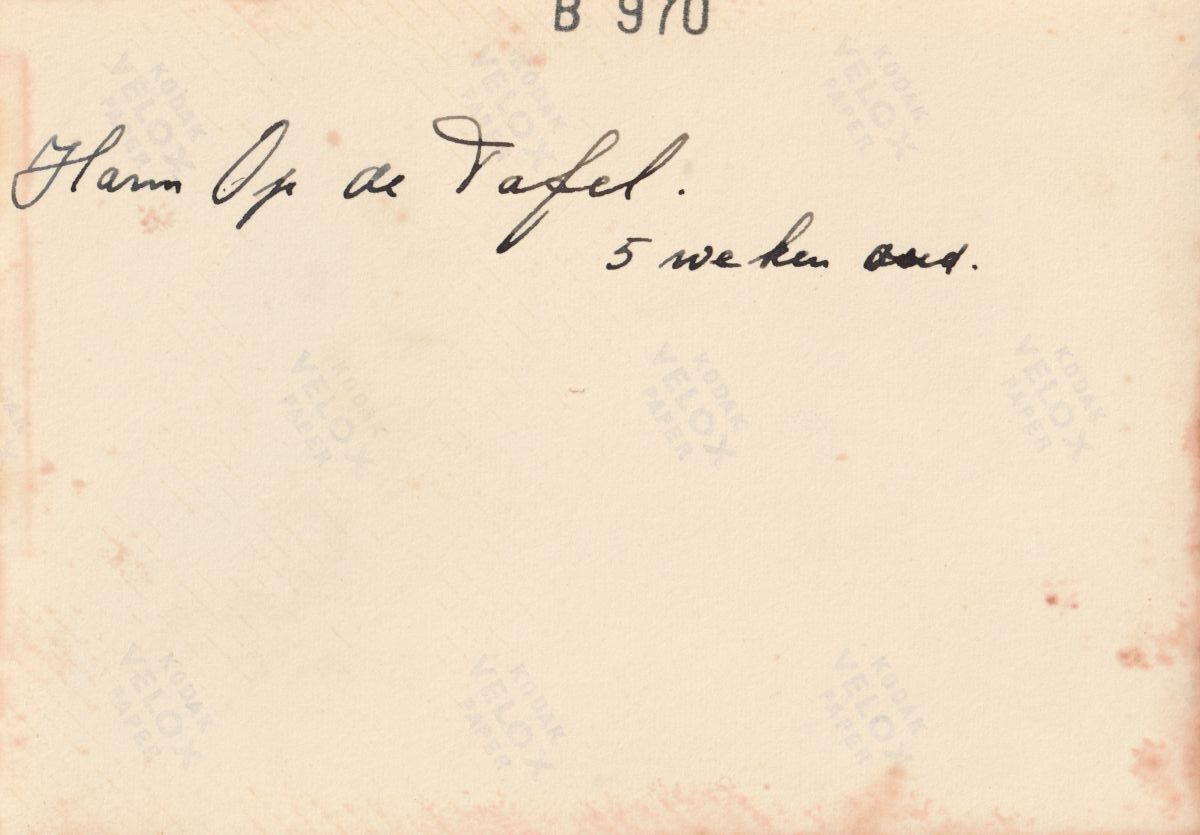 B 970
Harm Op de Tafel.
5 weken oud.
KODAK
VELOX
PAPER
KODAK
VELOX
PAPER
KODAK
VELOX
PAPER
KODAK
VELOX
PAPER
KODAK
VELOX
PAPER
KODAK
VELOX
PAPER
KODAK
VELOX
PAPER
KODAK
VELOX
PAPER
KODAK
VELOX
PAPER